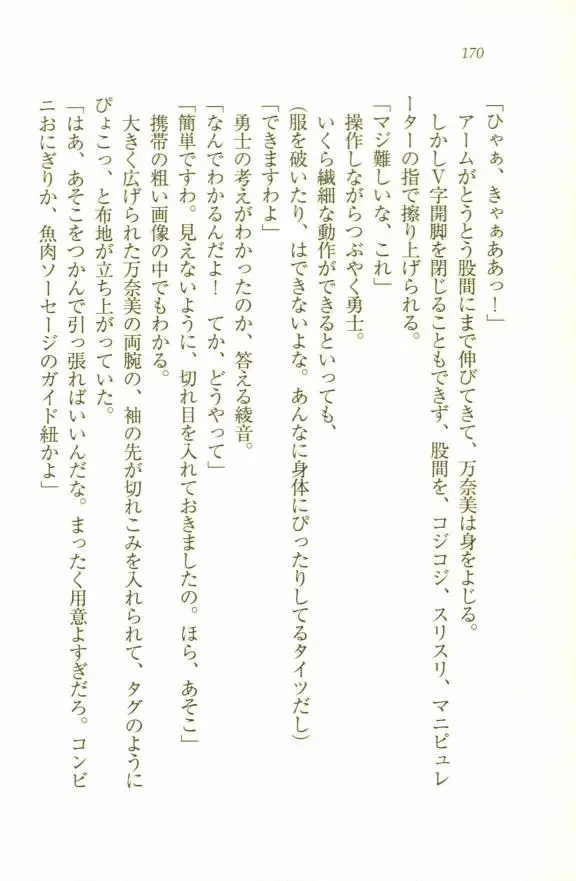 170
「ひゃぁ、きゃぁああっ！」
アームがとうとう股間にまで伸びてきて、万奈美は身をよじる。
しかしV字開脚を閉じることもできず、股間を、コジコジ、スリスリ、マニピュレ
ーターの指で擦り上げられる。
「マジ難しいな、これ」
操作しながらつぶやく勇士。
いくら繊細な動作ができるといっても、
(服を破いたり、はできないよな。あんなに身体にぴったりしてるタイツだし)
「できますわよ」
勇士の考えがわかったのか、答える綾音。
「なんでわかるんだよ！　てか、どうやって」
「簡単ですわ。見えないように、切れ目を入れておきましたの。ほら、あそこ」
携帯の粗い画像の中でもわかる。
大きく広げられた万奈美の両腕の、袖の先が切れこみを入れられて、タグのように
ぴょこっ、と布地が立ち上がっていた。
「はあ、あそこをつかんで引っ張ればいいんだな。まったく用意よすぎだろ。コンビ
ニおにぎりか、魚肉ソーセージのガイド紐かよ」